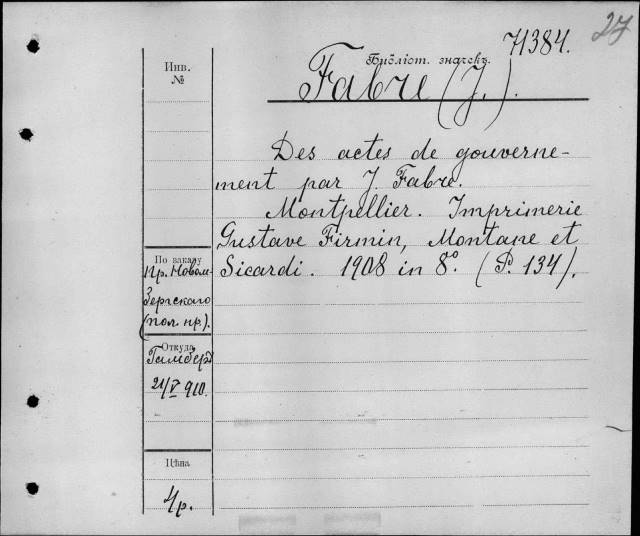 27
71384.
Библіот. значекъ.
Инв.
№
Fabre (J.).
Des actes de gouverne-
ment par J. Fabre.
Montpellier. Imprimerie
Gustave Firmin, Montane et
Sicardi. 1908 in 8°. (P. 134).
По заказу
Пр. Новом-
бергскаго
(пол. пр.).
Откуда
Гамберъ
21/V 910.
Цѣна
4р.